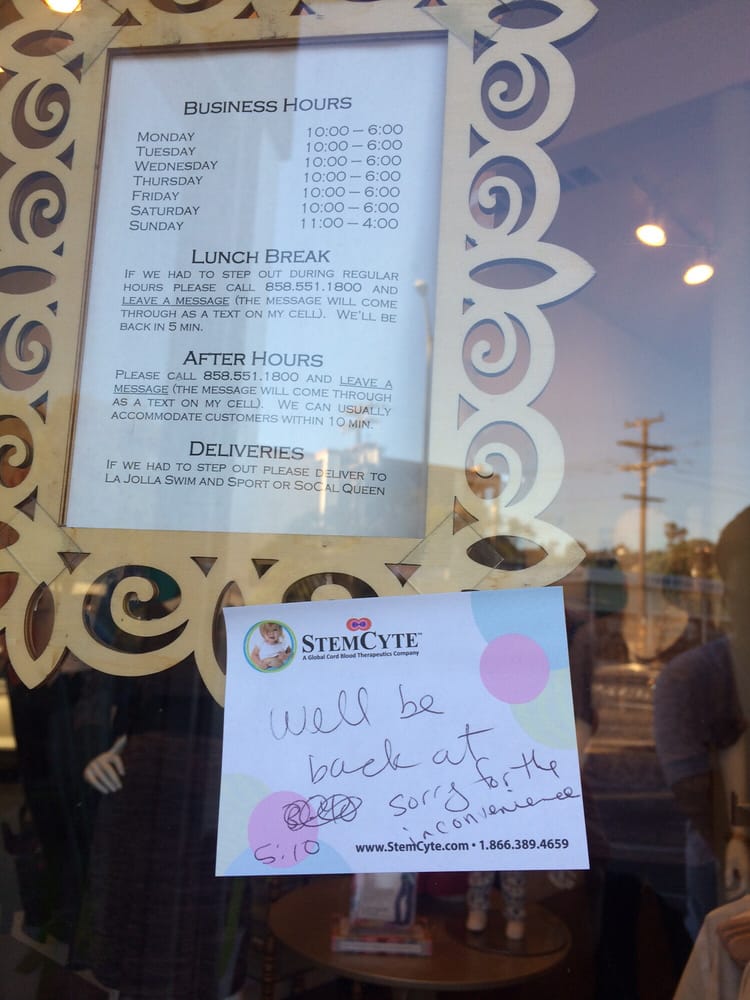 BUSINESS HOURS
MONDAY 10:00 – 6:00
TUESDAY 10:00 – 6:00
WEDNESDAY 10:00 – 6:00
THURSDAY 10:00 – 6:00
FRIDAY 10:00 – 6:00
SATURDAY 10:00 – 6:00
SUNDAY 11:00 – 4:00
LUNCH BREAK
IF WE HAD TO STEP OUT DURING REGULAR
HOURS PLEASE CALL 858.551.1800 AND
LEAVE A MESSAGE (THE MESSAGE WILL COME
THROUGH AS A TEXT ON MY CELL). WE'LL BE
BACK IN 5 MIN.
AFTER HOURS
PLEASE CALL 858.551.1800 AND LEAVE A
MESSAGE (THE MESSAGE WILL COME THROUGH
AS A TEXT ON MY CELL). WE CAN USUALLY
ACCOMMODATE CUSTOMERS WITHIN 10 MIN.
DELIVERIES
IF WE HAD TO STEP OUT PLEASE DELIVER TO
LA JOLLA SWIM AND SPORT OR SOCAL QUEEN
STEMCYTE™
A Global Cord Blood Therapeutics Company
Well be
back at
5:10 sorry for the
inconvenience
www.StemCyte.com • 1.866.389.4659